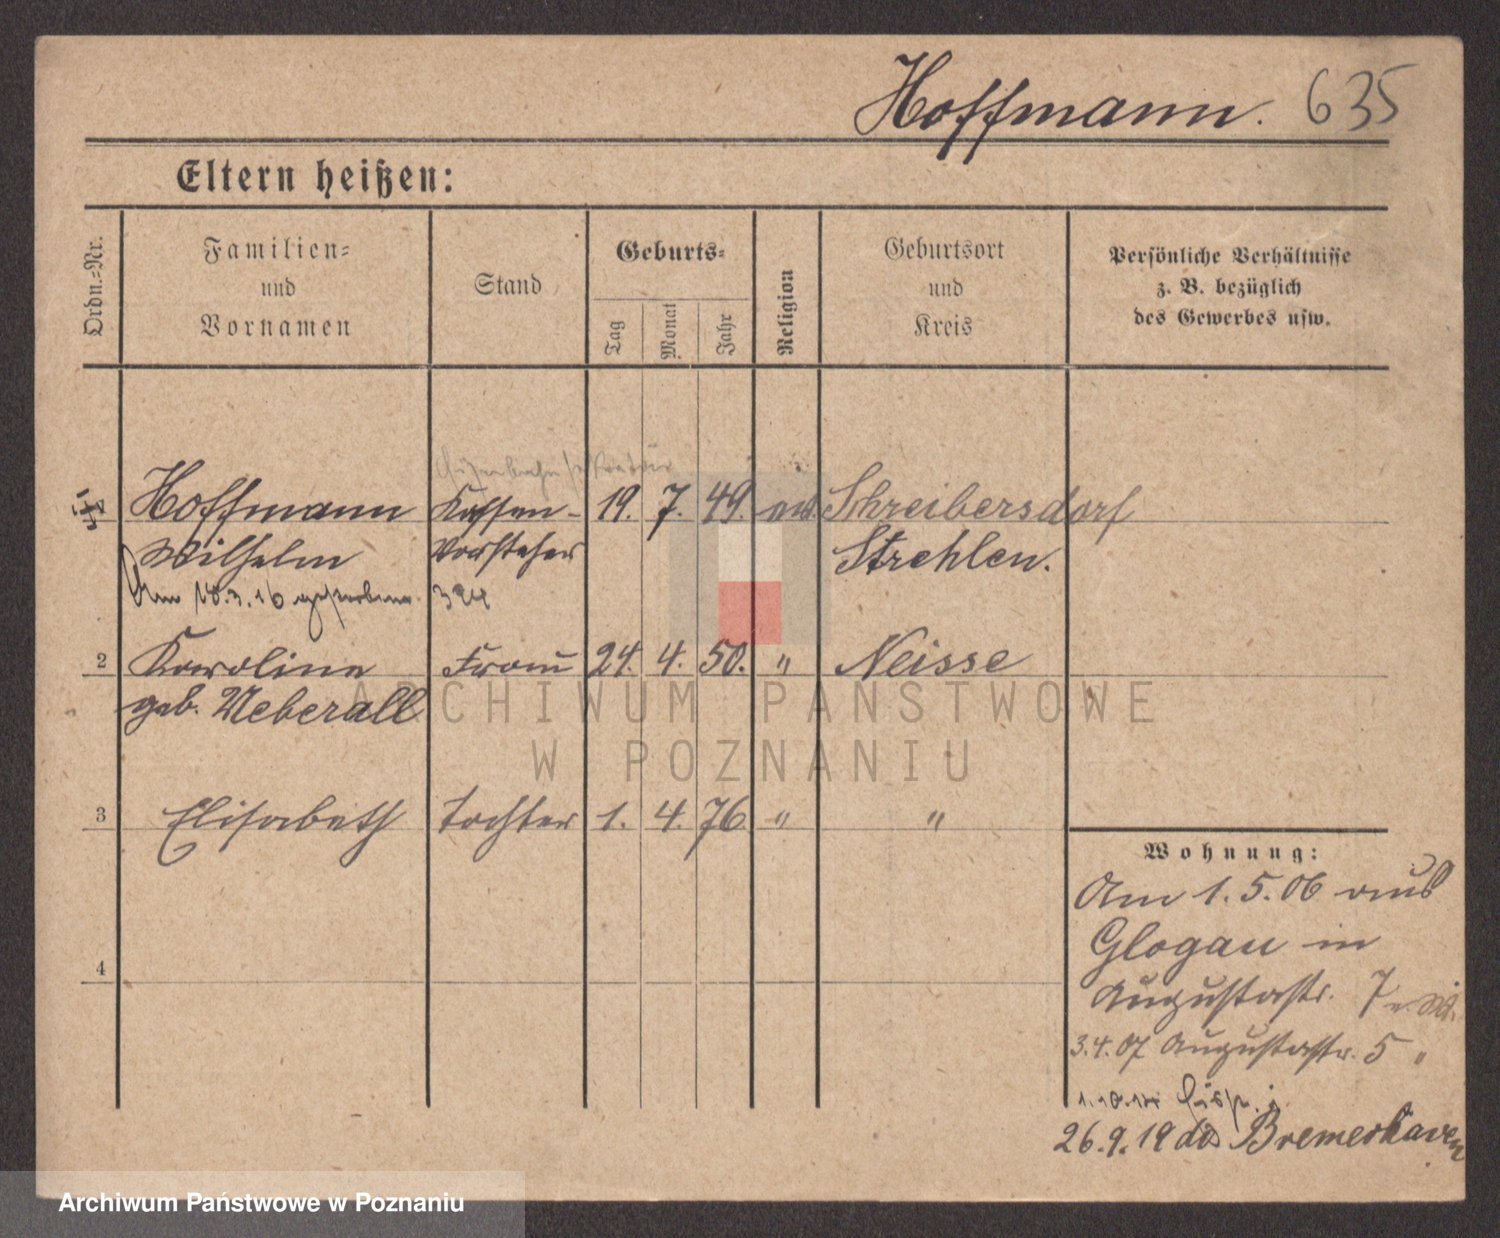 Hoffmann. 635
Eltern heißen:
Ordn.-Nr.
Familien-
und
Vornamen
Stand
Geburts-
Tag
Monat
Jahr
Religion
Geburtsort
und
Kreis
Persönliche Verhältnisse
z. B. bezüglich
des Gewerbes usw.
Hoffmann Kassen- 19. 7. 49. Schreibersdorf
Wilhelm Vorsteher Strehlen.
Am 18.3.16 gestorben. 324
2 Karoline Frau 24. 4. 50. " Neisse
geb. Ueberall
3 Elisabeth Tochter 1. 4. 76 " "
4
Wohnung:
Am 1.5.06 aus
Glogau in
Augustastr. 7
3.4.07 Augustastr. 5 "
26.9.19 Bremerhaven
ARCHIWUM PAŃSTWOWE
W POZNANIU
Archiwum Państwowe w Poznaniu